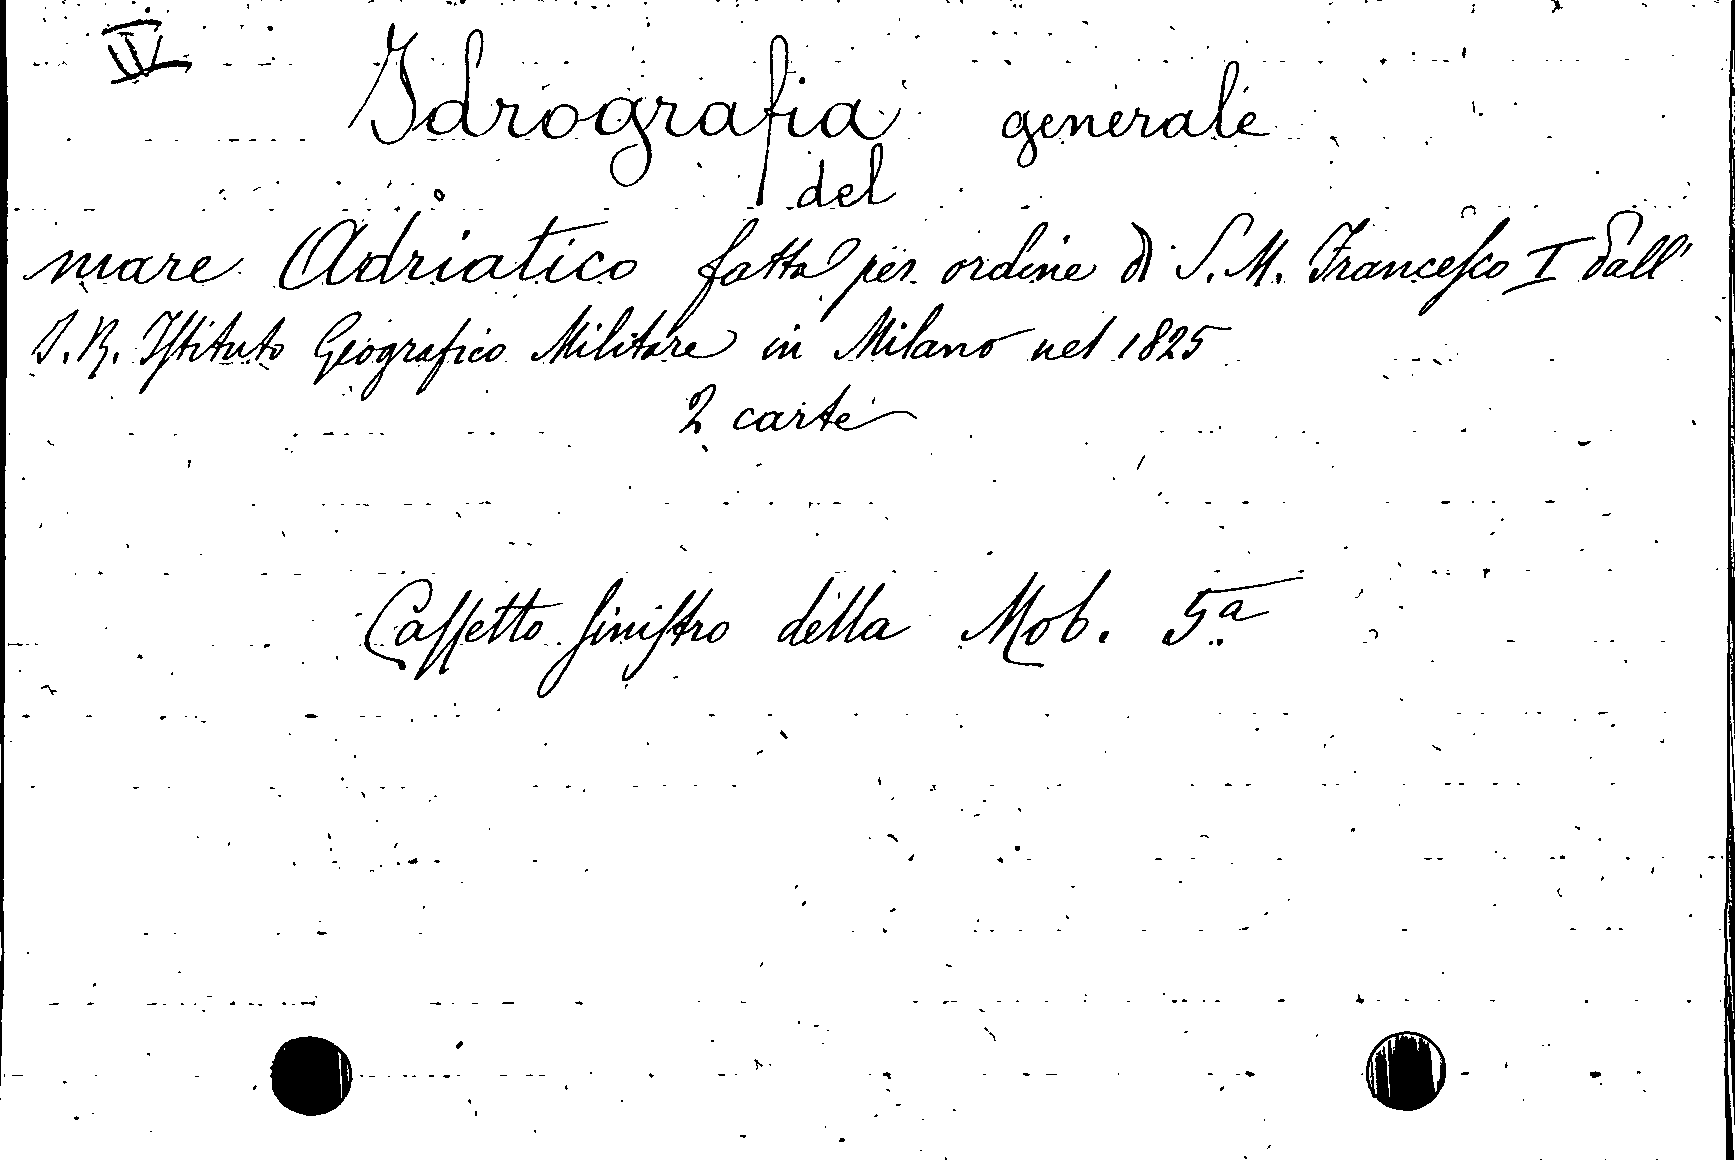 IV
Idrografia generale
del
mare Adriatico fatta per ordine di S. M. Francesco I dall'
I. R. Istituto Geografico Militare in Milano nel 1825
2 carte
Cassetto sinistro della Mob. 5a